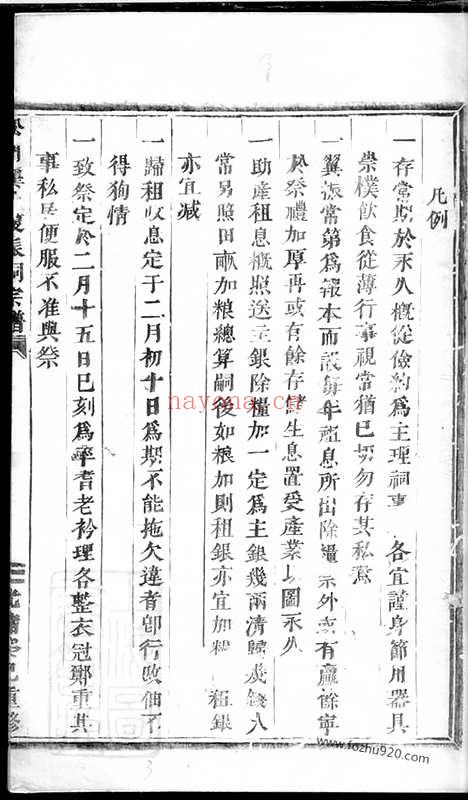 凡例
一存常期於永久概從儉約為主理祠事各宜謹身節用器具
崇樸飲食從薄行事視常猶已切勿存其私意
一翼振常第為報本而設每年租息所出除糧祭外或有贏餘寧
於祭禮加厚再或有餘存緒生息置受產業以圖永久
一助產租息概照送主銀除糧加一定為主銀幾兩清歸幾錢八
常另照田畝加粮總算嗣後如粮加則租銀亦宜加 粮 租銀
亦宜減
一歸租收息定于二月初十日為期不能拖欠違者卽行改佃不
得狥情
一致祭定於二月十五日巳刻為率耆老衿理各整衣冠鄭重其
事私居便服不准與祭
振祠宗譜
光緒 巳重修
nayona.cn
www.fozhu920.com
3